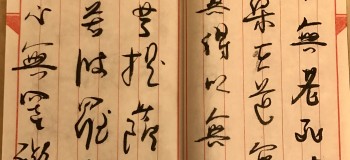 亦無老死
集滅道無
無得以無
菩提薩
若波羅
心無罣礙